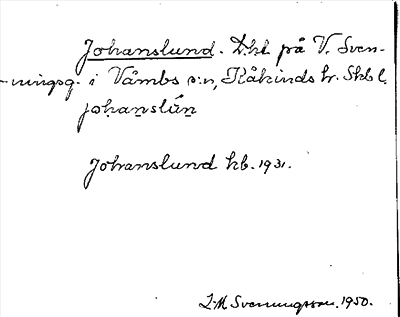 Johanslund. D:ht på V. Sven-
-ningsg. i Våmbs s:n, Kåkinds hr. Skbl.
johanslūn
Johanslund kb. 1931.
I.M. Svenungsson. 1950.